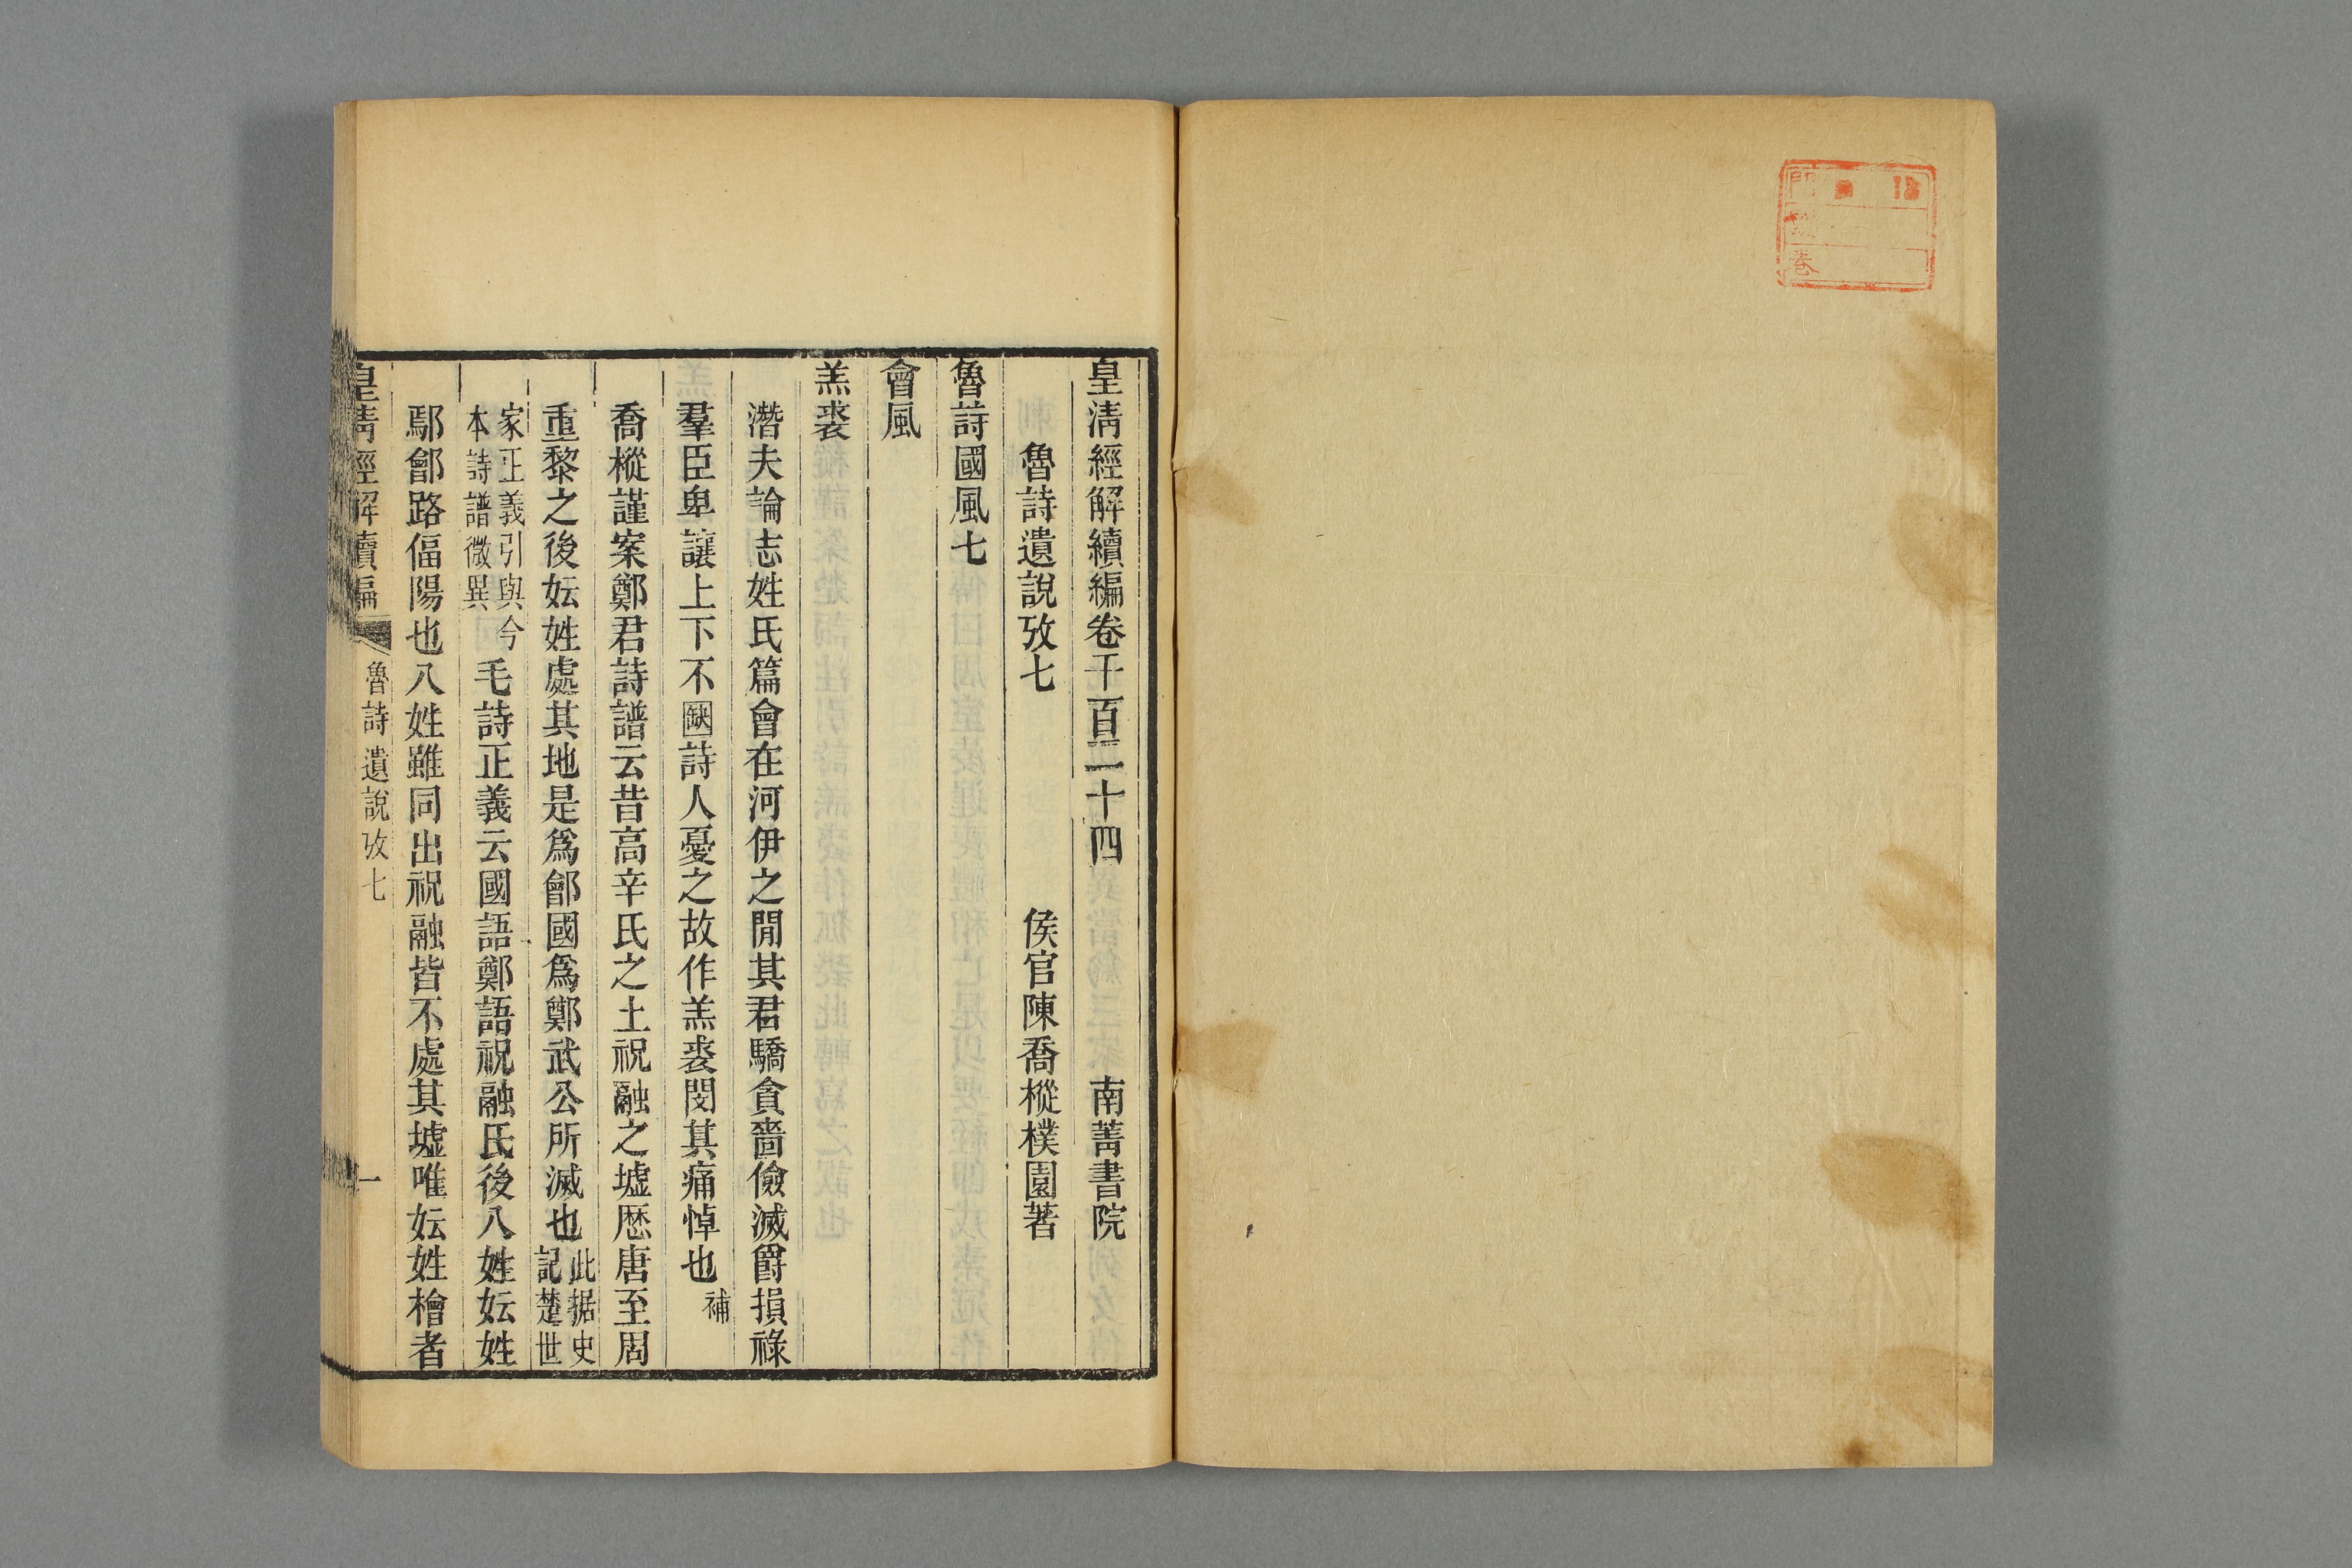 門
號
卷
皇淸經解續編卷千百二十四
南菁書院
魯詩遺說攷七
侯官陳喬樅樸園著
魯詩國風七
會風
羔裘
潛夫論志姓氏篇會在河伊之閒其君驕貪嗇儉滅爵損祿
羣臣卑讓上下不缺詩人憂之故作羔裘閔其痛悼也補
喬樅謹案鄭君詩譜云昔高辛氏之土祝融之墟歷唐至周
重黎之後妘姓處其地是爲鄶國爲鄭武公所滅也此据史
記楚世
家正義引與今
本詩譜微異
毛詩正義云國語鄭語祝融氏後八姓妘姓
鄢鄶路偪陽也八姓雖同出祝融皆不處其墟唯妘姓檜者
皇淸經解續編
魯詩遺說攷七
一